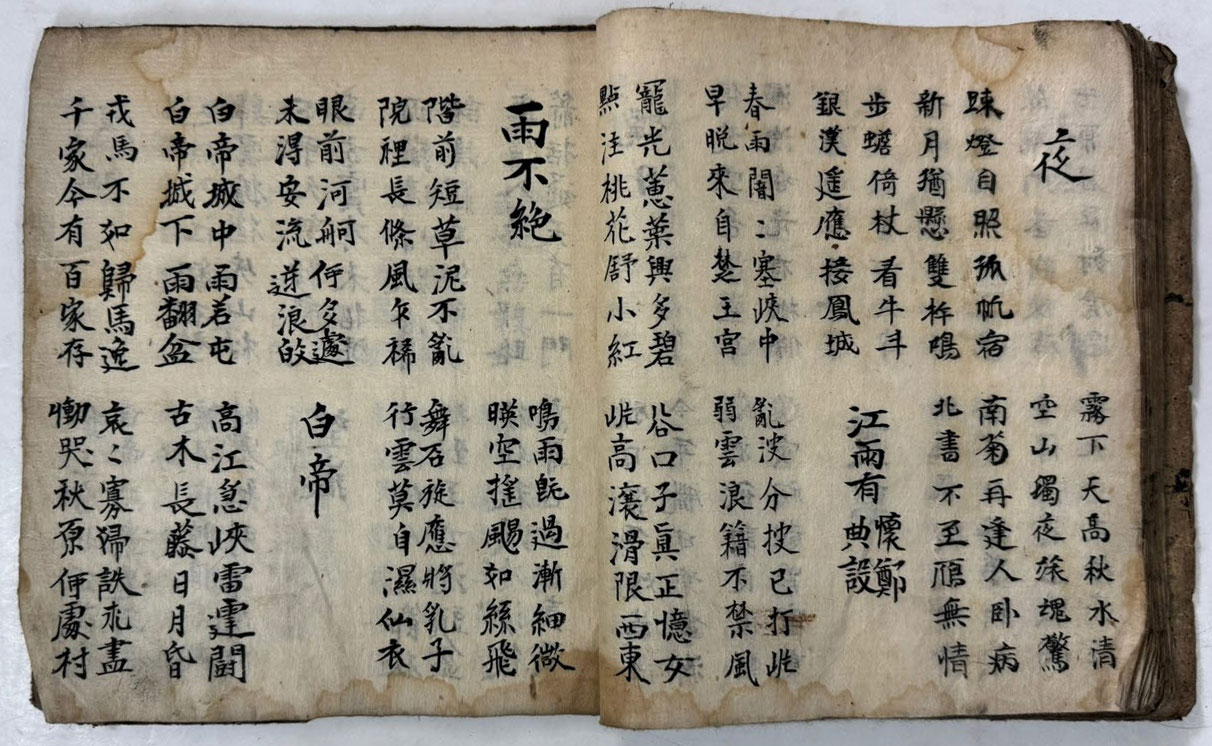 夜
霧下天高秋水清
空山獨夜旅魂驚
踈燈自照孤帆宿
新月猶懸雙杵鳴
南菊再逢人卧病
北書不至鴈無情
步蟾倚杖看牛斗
銀漢遥應接鳳城
江雨有懷鄭典設
春雨闇〻塞峽中
早晚來自楚王宮
亂波分披已打岸
弱雲浪籍不禁風
寵光蕙葉與多碧
點注桃花舒小紅
谷口子眞正憶女
岸高瀼滑限西東
雨不絶
鳴雨旣過漸細微
暎空搖颺如絲飛
階前短草泥不亂
院裡長條風乍稀
舞石旋應將乳子
行雲莫自濕仙衣
眼前河舸何多遽
未得安流逆浪皈
白帝
白帝城中雨若屯
白帝城下雨翻盆
高江急峽雷霆鬪
古木長藤日月昏
戎馬不如歸馬逸
千家今有百家存
哀〻寡婦誅求盡
慟哭秋原何處村